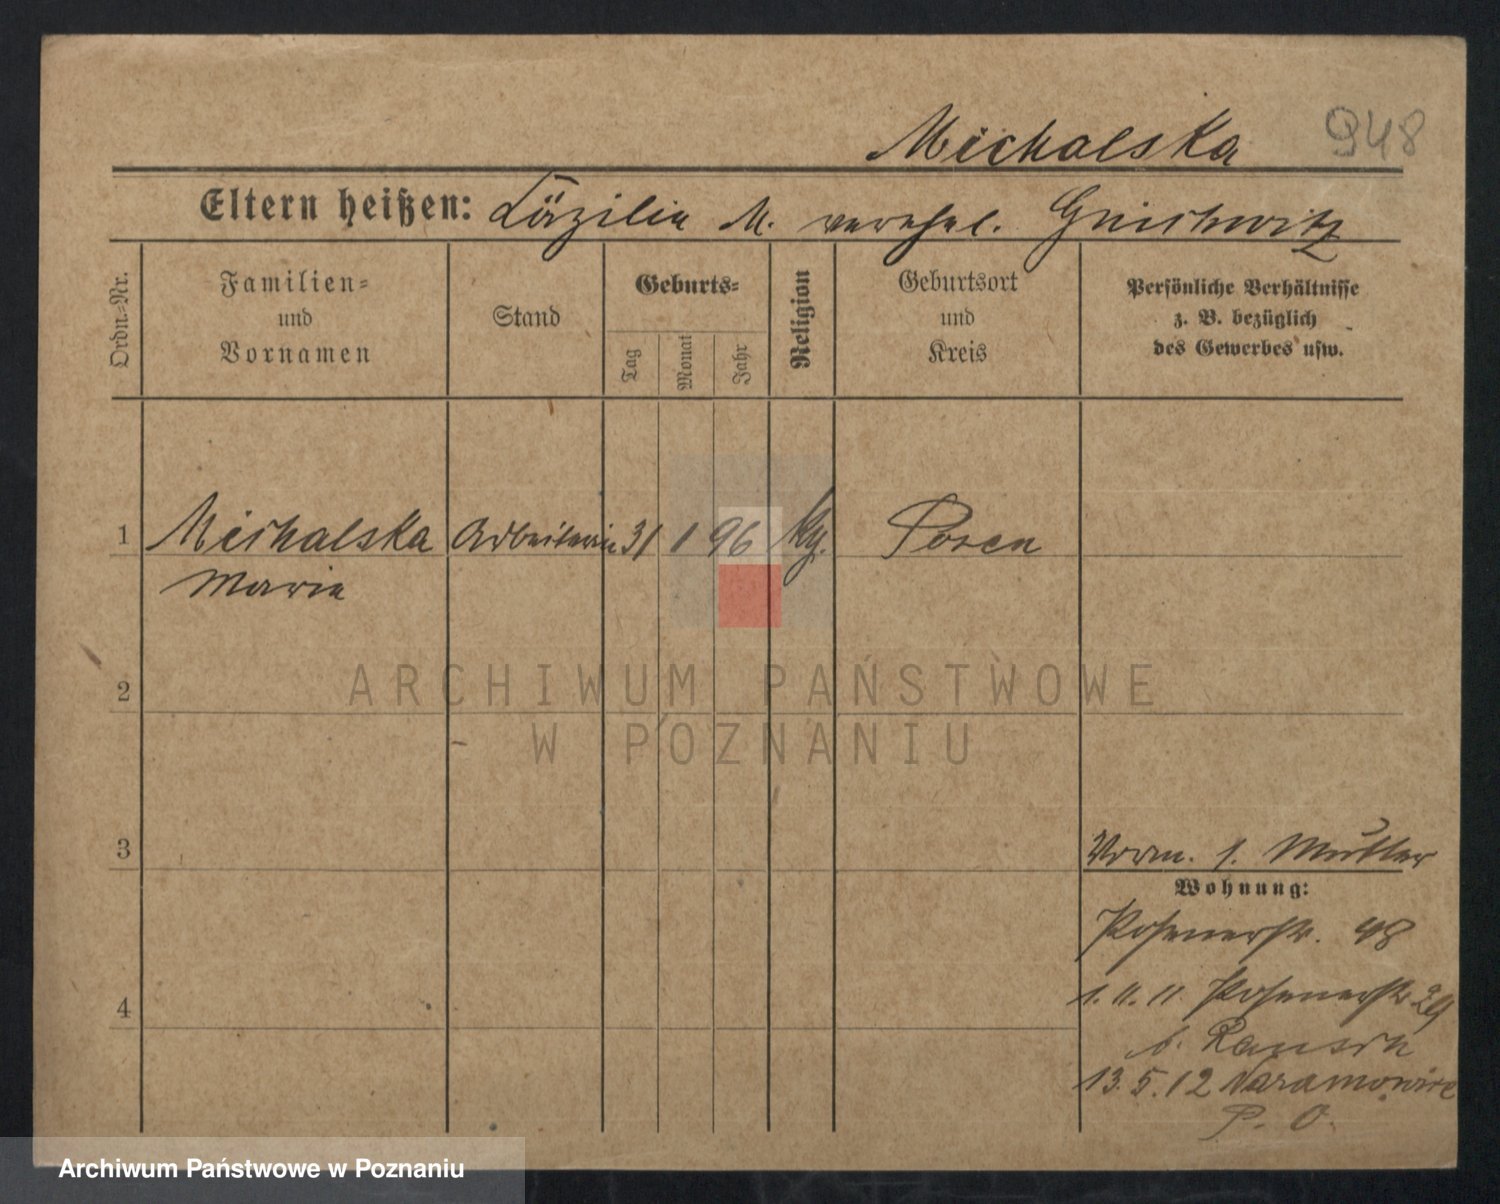 Michalska 948
Eltern heißen: Cäzilie M. verehel. Gnichwitz
Ordn=Nr.
Familien=
und
Vornamen
Stand
Geburts=
Tag
Monat
Jahr
Religion
Geburtsort
und
Kreis
Persönliche Verhältnisse
z. B. bezüglich
des Gewerbes usw.
1 Michalska Arbeiterin 31 1 96 Posen
Marie
2
3
Vorm. s. Mutter
Wohnung:
Posenerstr. 48
4
1. 11. 11. Posenerstr. 29
b.
13. 5. 12 Naramowice
P. O.
ARCHIWUM PAŃSTWOWE
W POZNANIU
Archiwum Państwowe w Poznaniu